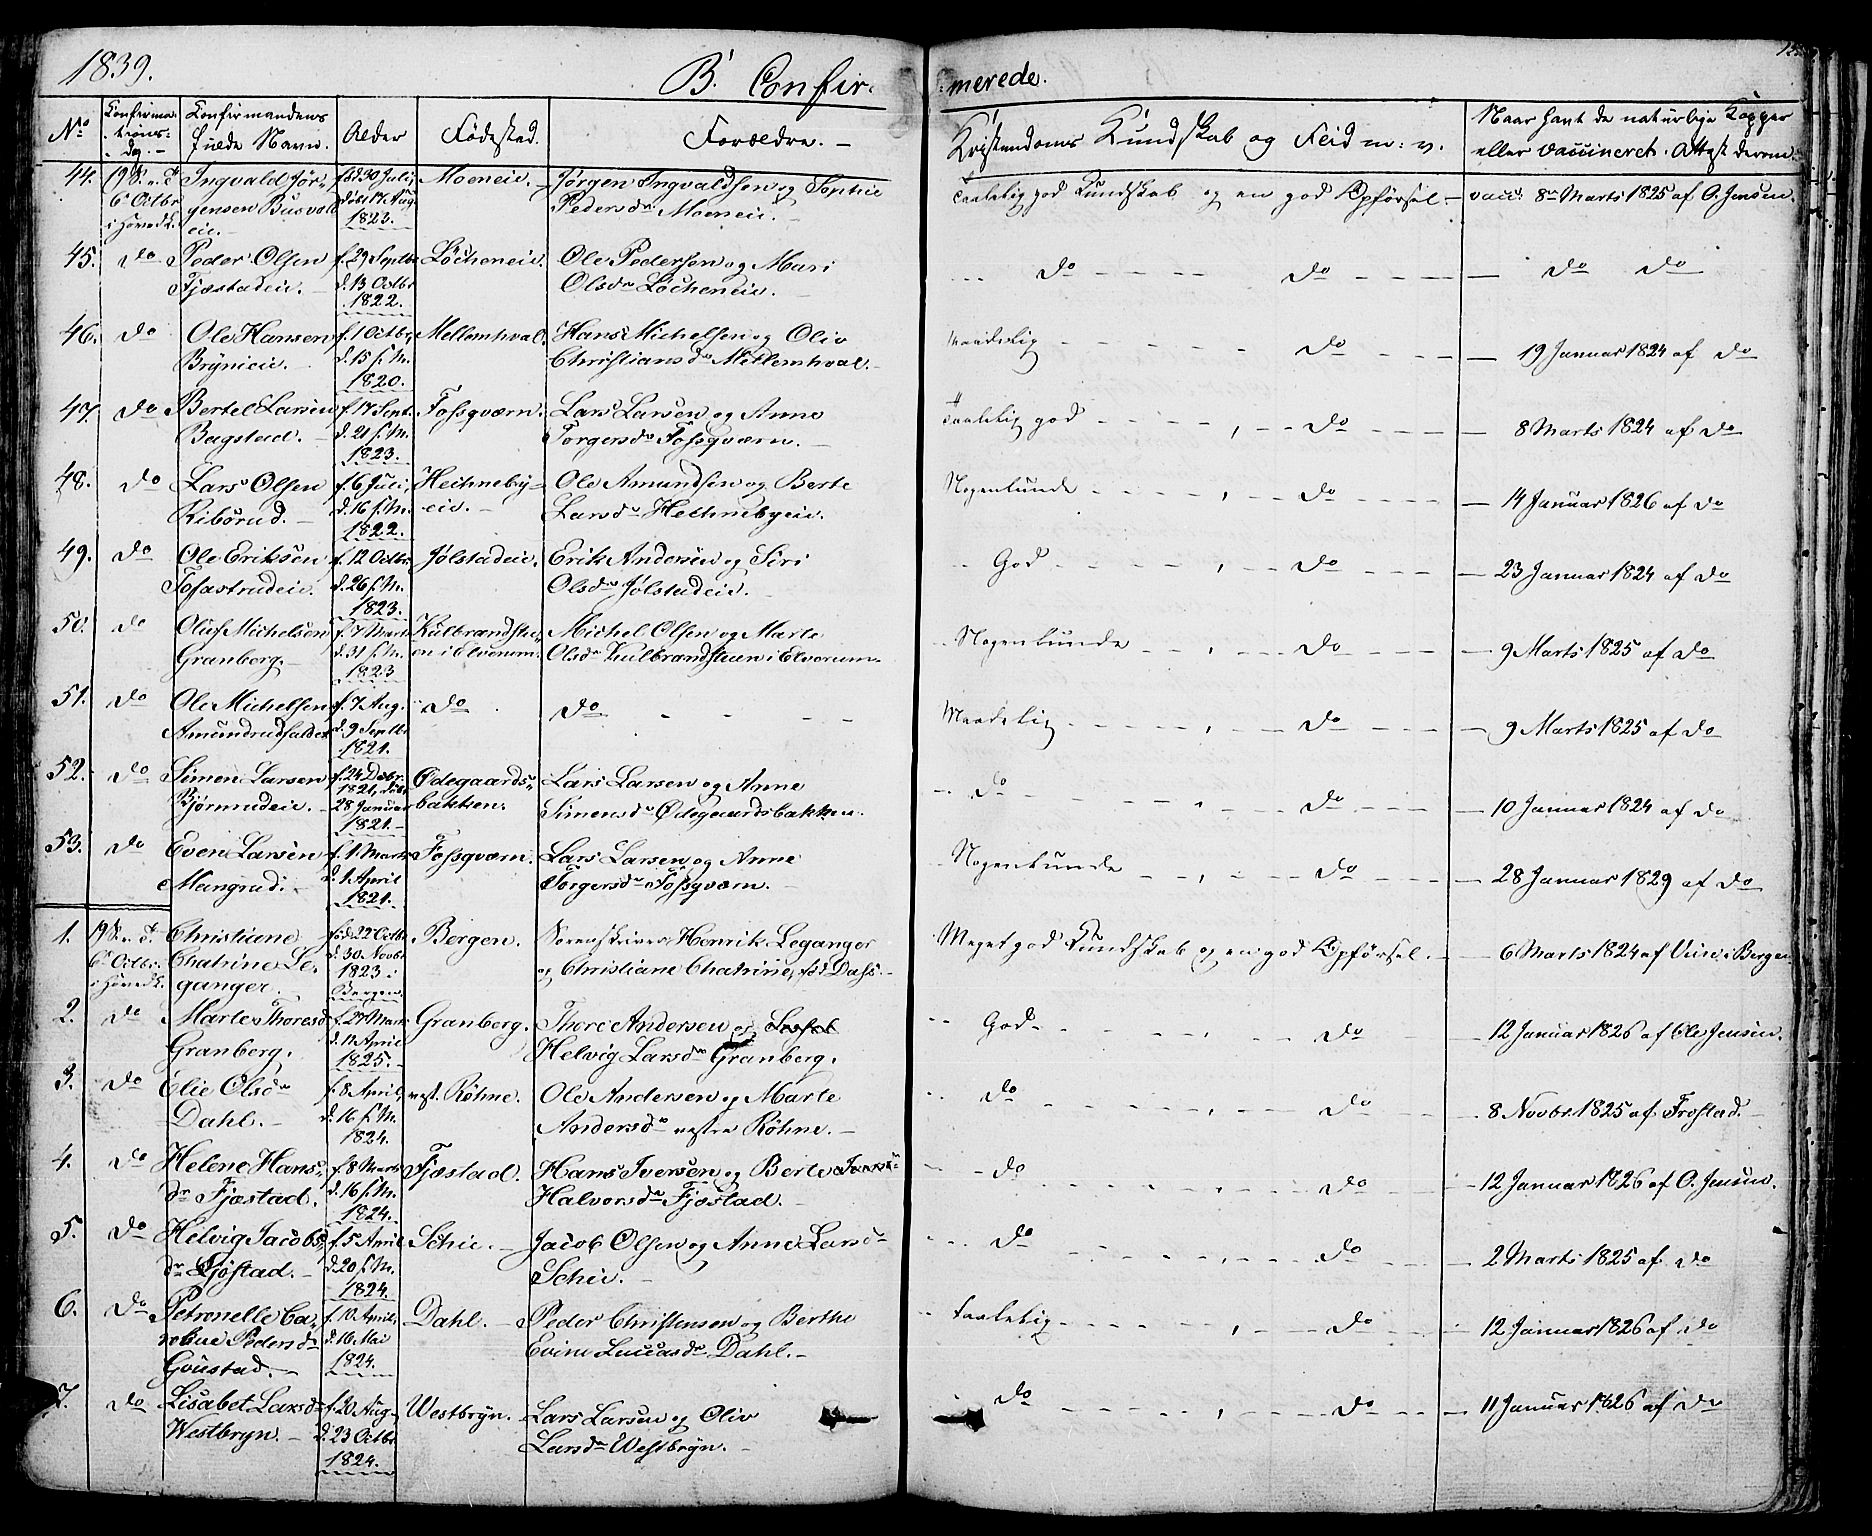 1839.
B. Confir-
merede.
No
Confirma-
tions-
dag.
Confirmandens
fulde Navn.
Alder
Fødested.
Forældre. –
Kristendoms Kundskab og Flid m: v.
Naar havt de naturlige Kopper
eller vaccineret. Attest derom.
44. 19 S. e. Tr.
6 Octbr
i Hovedk.
Ingvald Jør-
gensen Busvold
eie. –
fød 30 Juli,
døbt 17 Aug
1823.
Moeneie. –
Jørgen Ingvaldsen og Sophie
Pedersdr Moeneie. –
Taalelig god Kundskab og en god Opførsel –
vacc: 8de Marts 1825 af O. Jensen.
45. do Peder Olsen
Fjæstadeie. –
f. 29 Septbr
d. 13 Octbr
1822.
Løcheneie.
Ole Pedersen og Mari
Olsdr Løcheneie. –
do – do – do do
46. do Ole Hansen
Brynieie. –
f. 1 Octbr,
d. 15 s. M.
1820.
Mellemhval.
Hans Michelsen og Oliv
Christiansdr Mellemhval. –
Maadelig – do – 19 Januar 1824 af do
47. do Bertel Larsen
Bagstad. –
f. 17 Sept.
d. 21 s. M.
1823.
Fossqværn.
Lars Larsen og Anne
Torgersdr Fossqværn. –
Taalelig god – do – 8 Marts 1824 af do
48. do Lars Olsen
Kiborud. –
f. 6 Juli,
d. 16 s. M.
1822.
Hechneby-
eie. –
Ole Amundsen og Berte
Larsdr Hechnebyeie.
Nogenlunde – do – 14 Januar 1826 af do
49. do Ole Eriksen
Tofastrudeie.
f. 12 Octbr.
d. 26 s. M.
1823.
Jølstadeie.
Erik Andersen og Siri
Olsdr Jølstadeie.
God – do – 23 Januar 1824 af do
50. do Oluf Michelsen
Granberg.
f. 7 Marts
d. 31 s. M.
1823
Kulbrandstu-
en i Elverum.
Michel Olsen og Marte
Olsdr Kulbrandstuen i Elverum.
Nogenlunde – do – 9 Marts 1825 af do
51. do Ole Michelsen
Amundrudsalder
f. 7 Aug.
d. 9 Septbr
1821.
do
do
Maadelig – do – 9 Marts 1825 af do
52. do Simen Larsen
Bjørnrudeie. –
f. 24 Decbr.
28 Januar
1821. –
Ødegaards-
bakken.
Lars Larsen og Anne
Simensdr Ødegaardsbakken.
do – do – 10 Januar 1824 af do
53. do Even Larsen
Mangrud. –
f. 1 Marts
d. 1 April
1821.
Fossqværn.
Lars Larsen og Anne
Torgersdr Fossqværn. –
Nogenlunde – do – 28 Januar 1829 af do
1. 19 S. e. Tr.
6 Octbr.
i Hovedk.
Christiane
Chatrine Le-
ganger. –
fød 22 Octbr
d. 30 Novbr
1823 i
Bergen.
Bergen.
Sorenskriver Henrik Leganger
og Christiane Chatrine, fød Dahl. –
Meget god Kundskab og en god Opførsel. – 6 Marts 1824 af i Bergen
2. do Marte Thoresdr
Granberg.
f. 27 Marts
d. 11 April
1825. –
Granberg.
Thore Andersen og
Helvig Larsdr Granberg.
God – do – 12 Januar 1826 af Ole Jensen.
3. do Elie Olsdr
Dahl. –
f. 8 April,
d. 16 s. M.
1824.
vest. Røhne.
Ole Andersen og Marte
Andersdr vestre Røhne. –
do – do – 8 Novbr. 1825 af Frostad. –
4. do Helene Hans-
dr Fjæstad.
f. 8 Marts
d. 16 s. M.
1824.
Fjæstad.
Hans Iversen og Berte
Halvorsdr Fjæstad. –
do – do – 12 Januar 1826 af O. Jensen.
5. do Helvig Jacobs-
dr Sjøstad. –
f. 5 April
d. 20 s. M.
1824.
Schie. –
Jacob Olsen og Anne Larsdr
Schie. –
do – do – 2 Marts 1825 af do
6. do Petronelle Ca-
roline Pedersdr
Goustad. –
f. 10 April,
d. 16 Mai
1824.
Dahl. –
Peder Christensen og Berthe
Evine Luccasdr Dahl. –
taalelig – do – 12 Januar 1826 af do
7. do Lisabet Larsdr
Westbryn. –
f. 20 Aug.
d. 23 Octbr
1824.
Westbryn.
Lars Larsen og Oliv
Larsdr Westbryn. –
do – do – 11 Januar 1826 af do